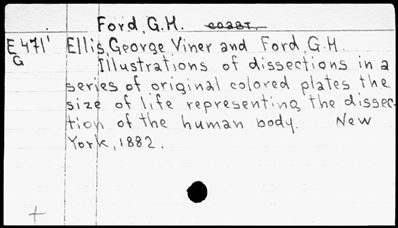 Ford, G.H.
E 471'
G
Ellis, George Viner and Ford, G.H.
Illustrations of dissections in a
series of original colored plates the
size of life representing the dissec-
tion of the human body. New
York, 1882.